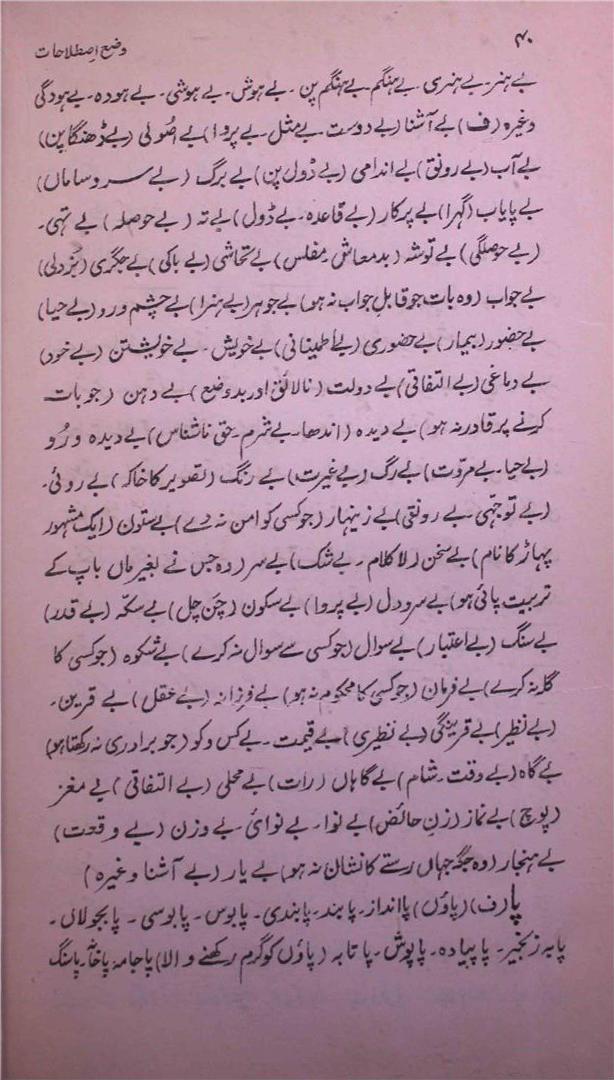 ۴۰
وضع اصطلاحات
بے ہنر۔ بے ہنری۔ بے ہنگم۔ بے ہنگم پن۔ بے ہوش۔ بے ہوشی۔ بے ہودہ۔ بے ہودگی
وغیرہ (ف) بے آشنا (بے دوست۔ بے مثل۔ بے پروا) بے اصولی (بے ڈھنگاپن)
بے آب (بے رونق) بے اندامی (بے ڈول پن) بے برگ (بے سروساماں)
بے پایاب (گہرا) بے پرکار (بے قاعدہ۔ بے ڈول) بے تہ (بے حوصلہ) بے تہی۔
(بے حوصلگی) بے توشہ (بدمعاش۔ مفلس) بے تحاشی (بے باکی) بے جگری (بزدلی)
بے جواب (وہ بات جو قابل جواب نہ ہو) بے جوہر (بے ہنر) بے چشم و رو (بے حیا)
بے حضور (بیمار) بے حضوری (بے اطمینانی) بے خویش۔ بے خویشتن (بے خود)
بے دماغی (بے التفاتی) بے دولت (نالائق اور بد وضع) بے دہن (جو بات
کرنے پر قادر نہ ہو) بے دیدہ (اندھا۔ بے شرم۔ حق ناشناس) بے دیدہ و رُو
(بے حیا۔ بے مروّت) بے رگ (بے غیرت) بے رنگ (تصویر کا خاکہ) بے روئی۔
(بے توجہی۔ بے رونقی) بے زینہار (جو کسی کو امن نہ دے) بے ستون (ایک مشہور
پہاڑ کا نام) بے سخن (لا کلام۔ بے شک) بے سر (وہ جس نے بغیر ماں باپ کے
تربیت پائی ہو) بے سرو دل (بے پروا) بے سکون (چن چل) بے سکّہ (بے قدر)
بے سنگ (بے اعتبار) بے سوال (جو کسی سے سوال نہ کرے) بے شکوہ (جو کسی کا
گلہ نہ کرے) بے فرمان (جو کسی کا محکوم نہ ہو) بے فرزانہ (بے عقل) بے قرین۔
(بے نظیر) بے قرینگی (بے نظیری) بے قیمت۔ بے کس و کو (جو برادری نہ رکھتا ہو)
بے گاہ (بے وقت۔ شام) بے گاہاں (رات) بے محلی (بے التفاتی) بے مغز
(پوچ) بے نماز (زن حائض) بے نوا۔ بے نوائی۔ بے وزن (بے وقعت)
بے ہنجار (وہ جگہ جہاں رستے کا نشان نہ ہو) بے یار (بے آشنا وغیرہ)
پا (ف) (پاؤں) پا انداز۔ پابند۔ پابندی۔ پابوس۔ پابوسی۔ پابجولاں۔
پابہ زنجیر۔ پاپیادہ۔ پاپوش۔ پاتابہ (پاؤں کو گرم رکھنے والا) پاجامہ۔ پاسنگ